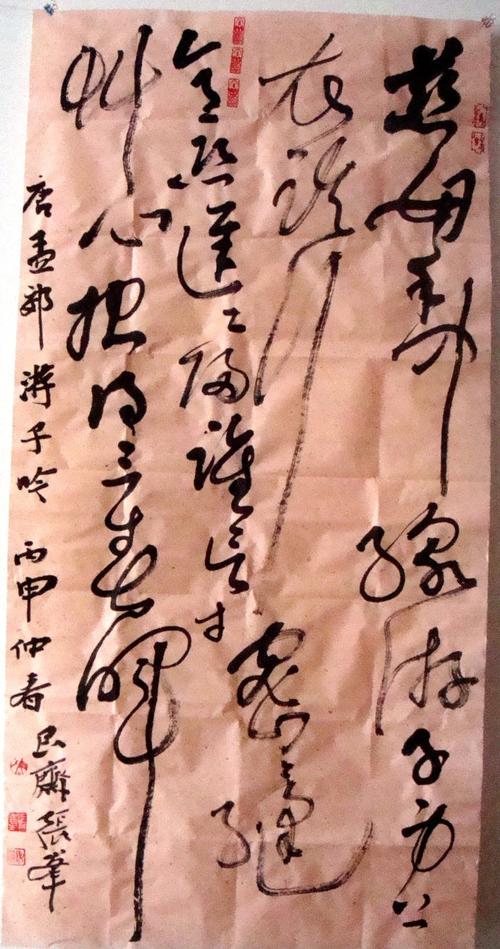 慈母手中線游子身上
衣臨行密密縫
意恐遲〻歸誰言寸
艸心报得三春暉
唐孟郊游子吟 丙申仲春 齋張峯